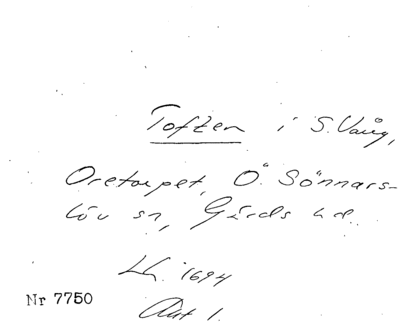 Toften i S. Vång,
Oretorpet, Ö. Sönnars-
löv sn, Gärds hd.
Lh. 1694
Nr 7750
Akt 1.